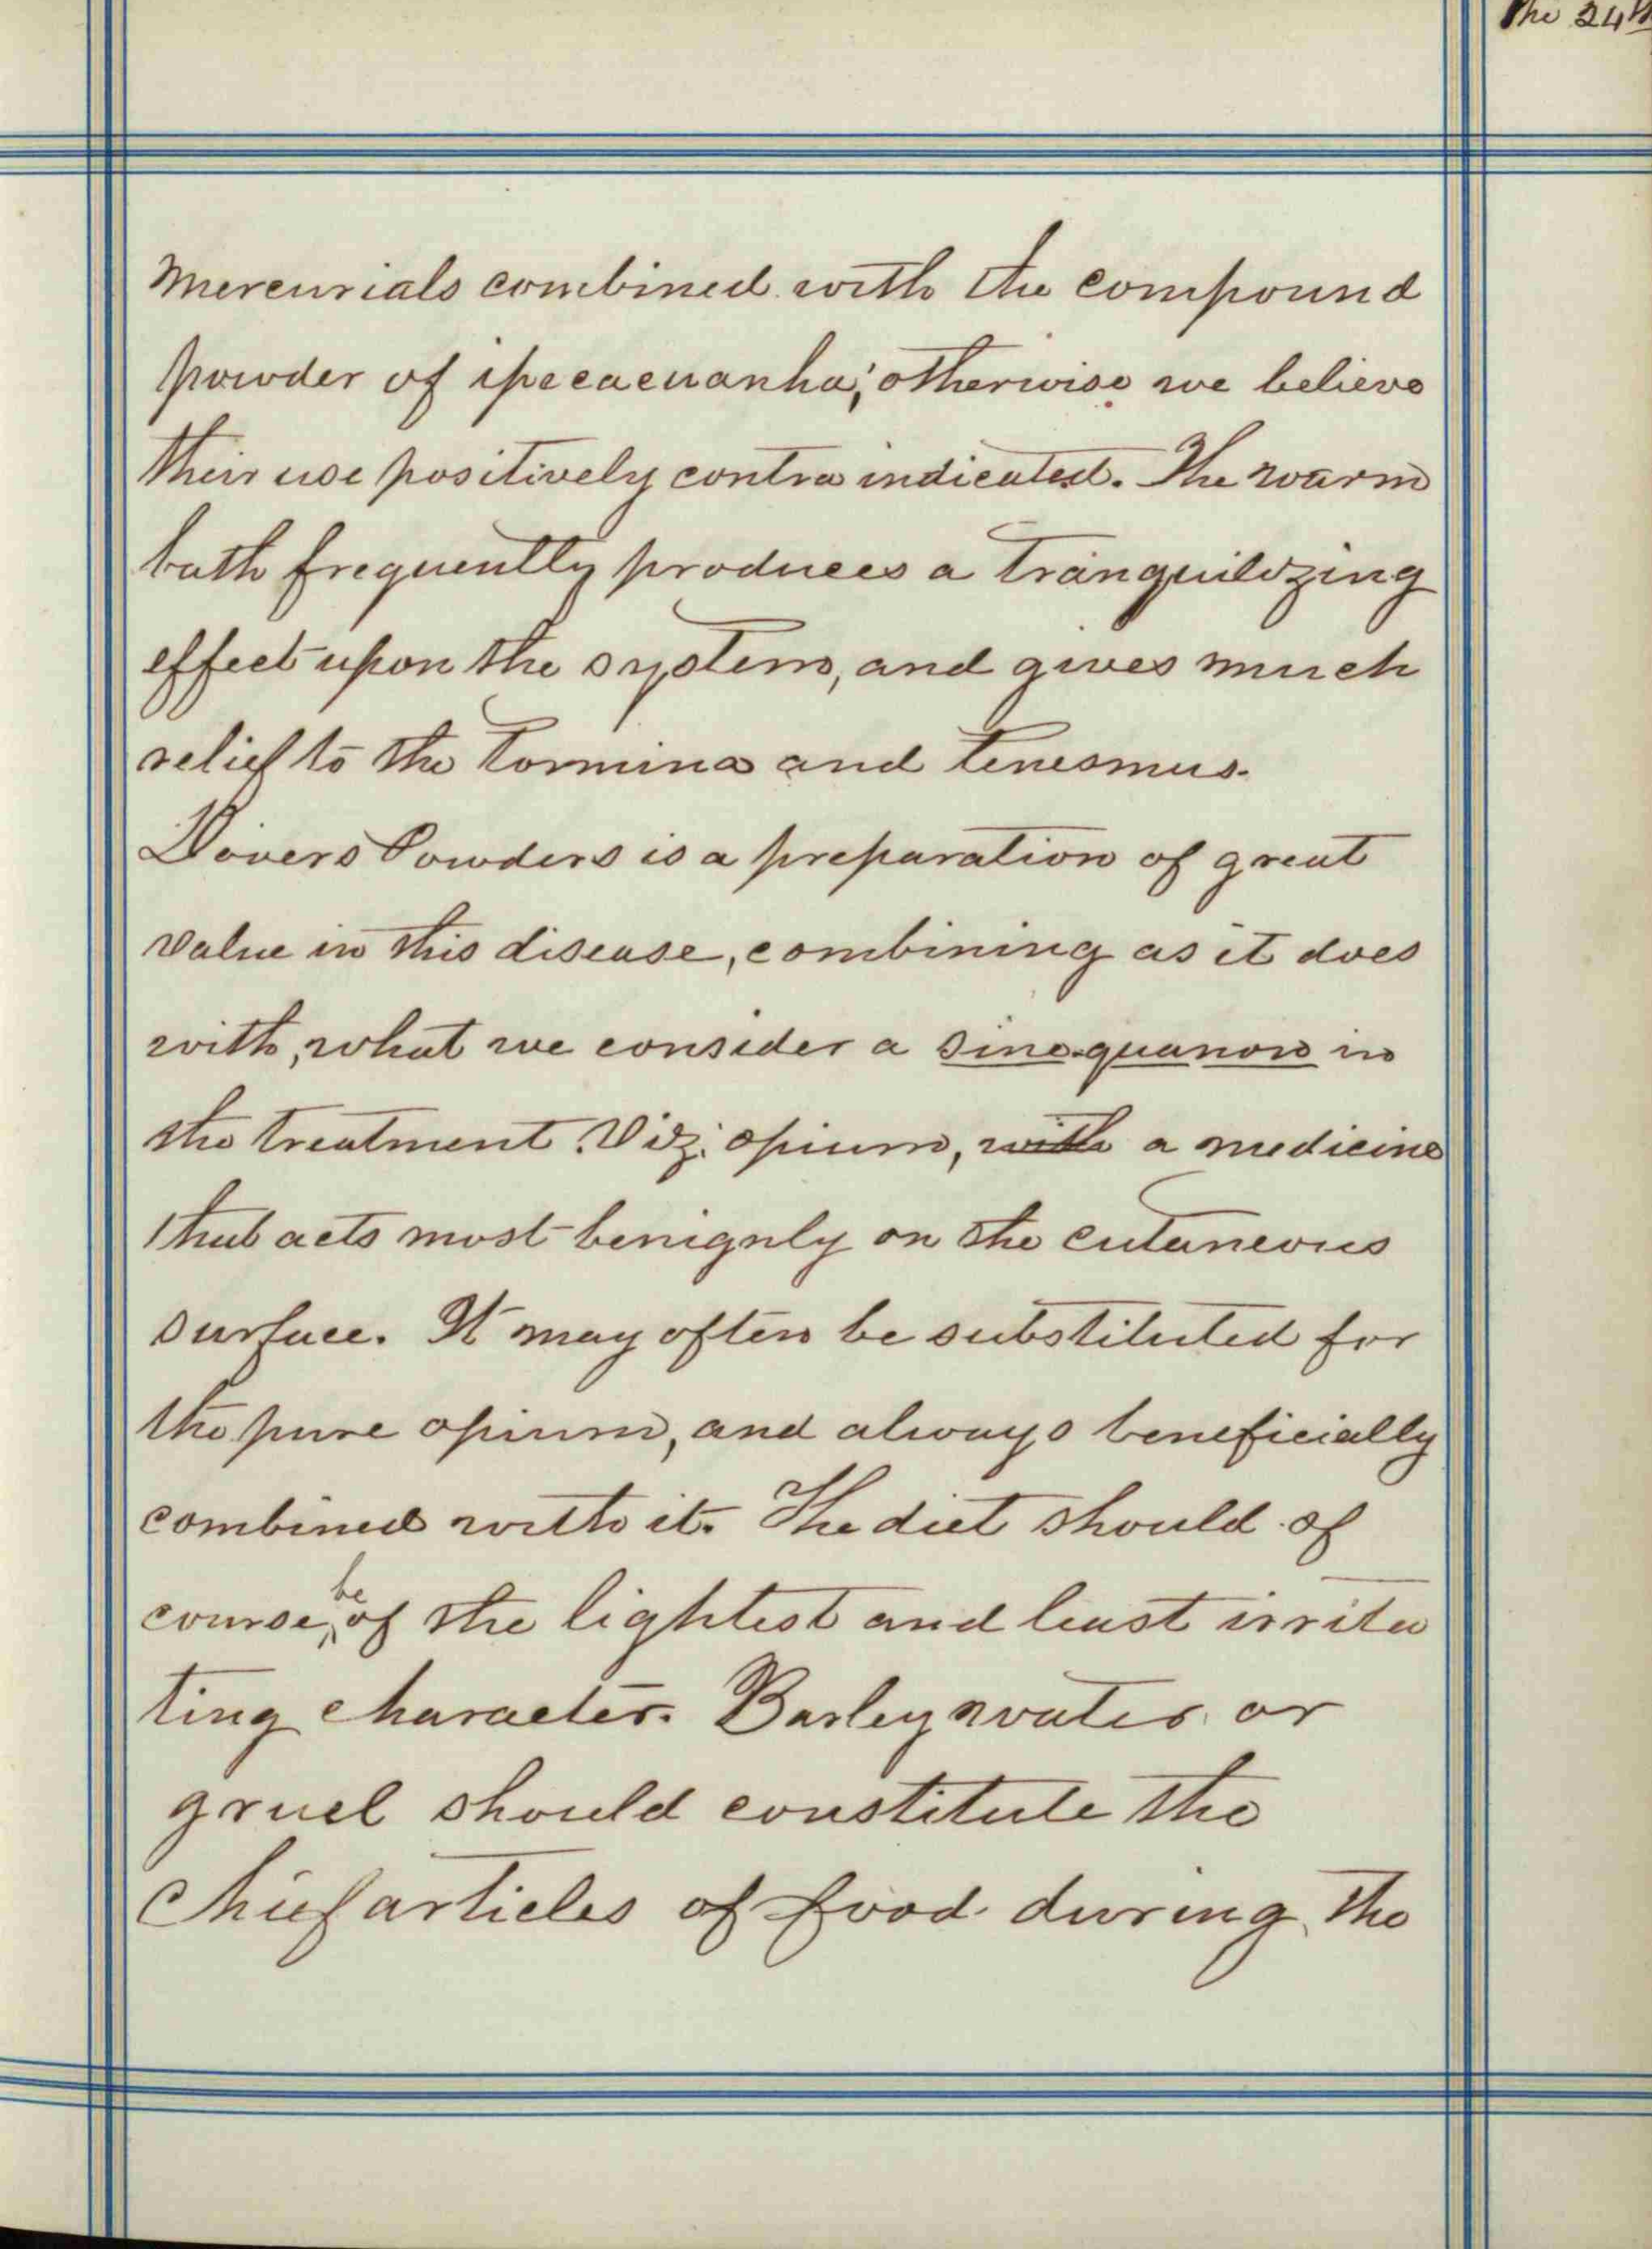 The 24th
mercurials combined with the compound
powder of ipecacuanha; otherwise we believe
their use positively contra indicated. The warm
bath frequently produces a tranquilizing
effect upon the system, and gives much
relief to the tormina and tenesmus.
Dovers Powders is a preparation of great
value in this disease, combining as it does
with, what we consider a sine quanon in
the treatment. Viz; opium, with a medicine
that acts most benignly on the cutaneous
surface. It may often be substituted for
the pure opium, and always beneficially
combined with it. The diet should of
course, be of the lightest and least irrita
ting character. Barley water or
gruel should constitute the
chief articles of food during the